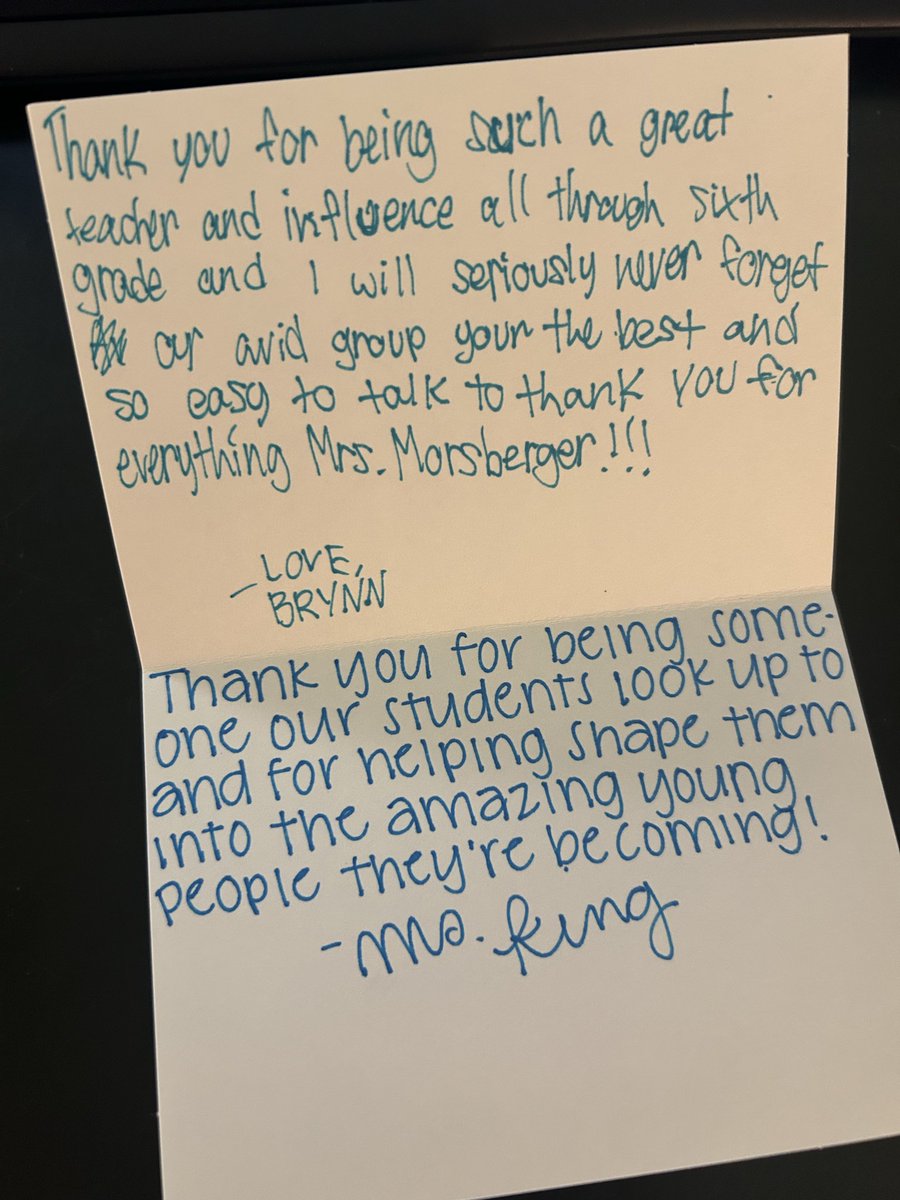 Thank you for being such a great
teacher and influence all through sixth
grade and I will seriously never forget
our avid group your the best and
so easy to talk to thank you for
everything Mrs. Morsberger!!!
- LOVE,
BRYNN
Thank you for being some-
one our students look up to
and for helping shape them
into the amazing young
people they're becoming!
- Ms. King